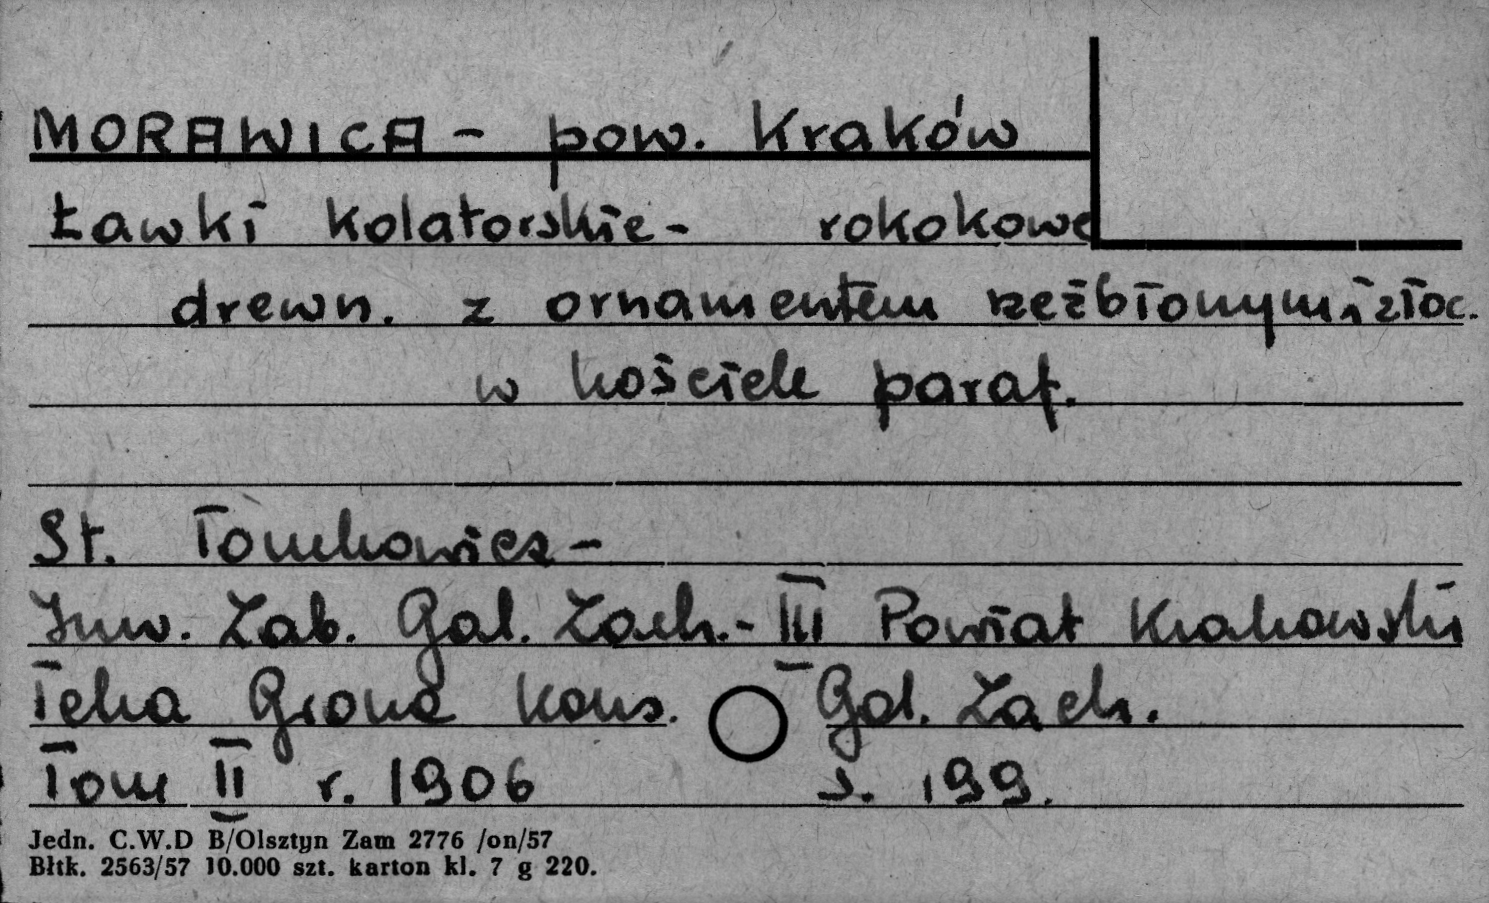 MORAWICA - pow. Kraków
Ławki kolatorskie - rokokowe
drewn. z ornamentem rzeźbionym i złoc.
w kościele paraf.
St. Tomkowicz -
Inw. Zab. Gal. Zach. - III Powiat Krakowski
Teka Grona Kons. Gal. Zach.
Tom II r. 1906 s. 199.
Jedn. C.W.D B/Olsztyn Zam 2776 /on/57
Błtk. 2563/57 10.000 szt. karton kl. 7 g 220.